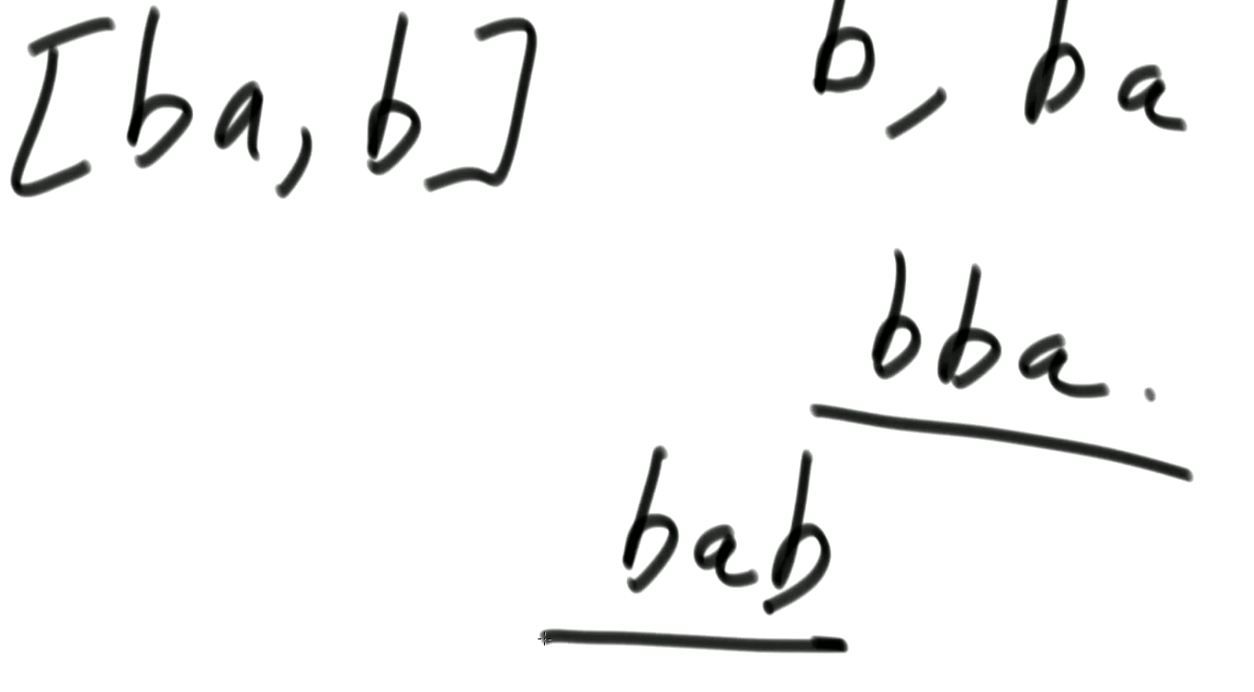 [ba, b] b, ba
bba.
bab